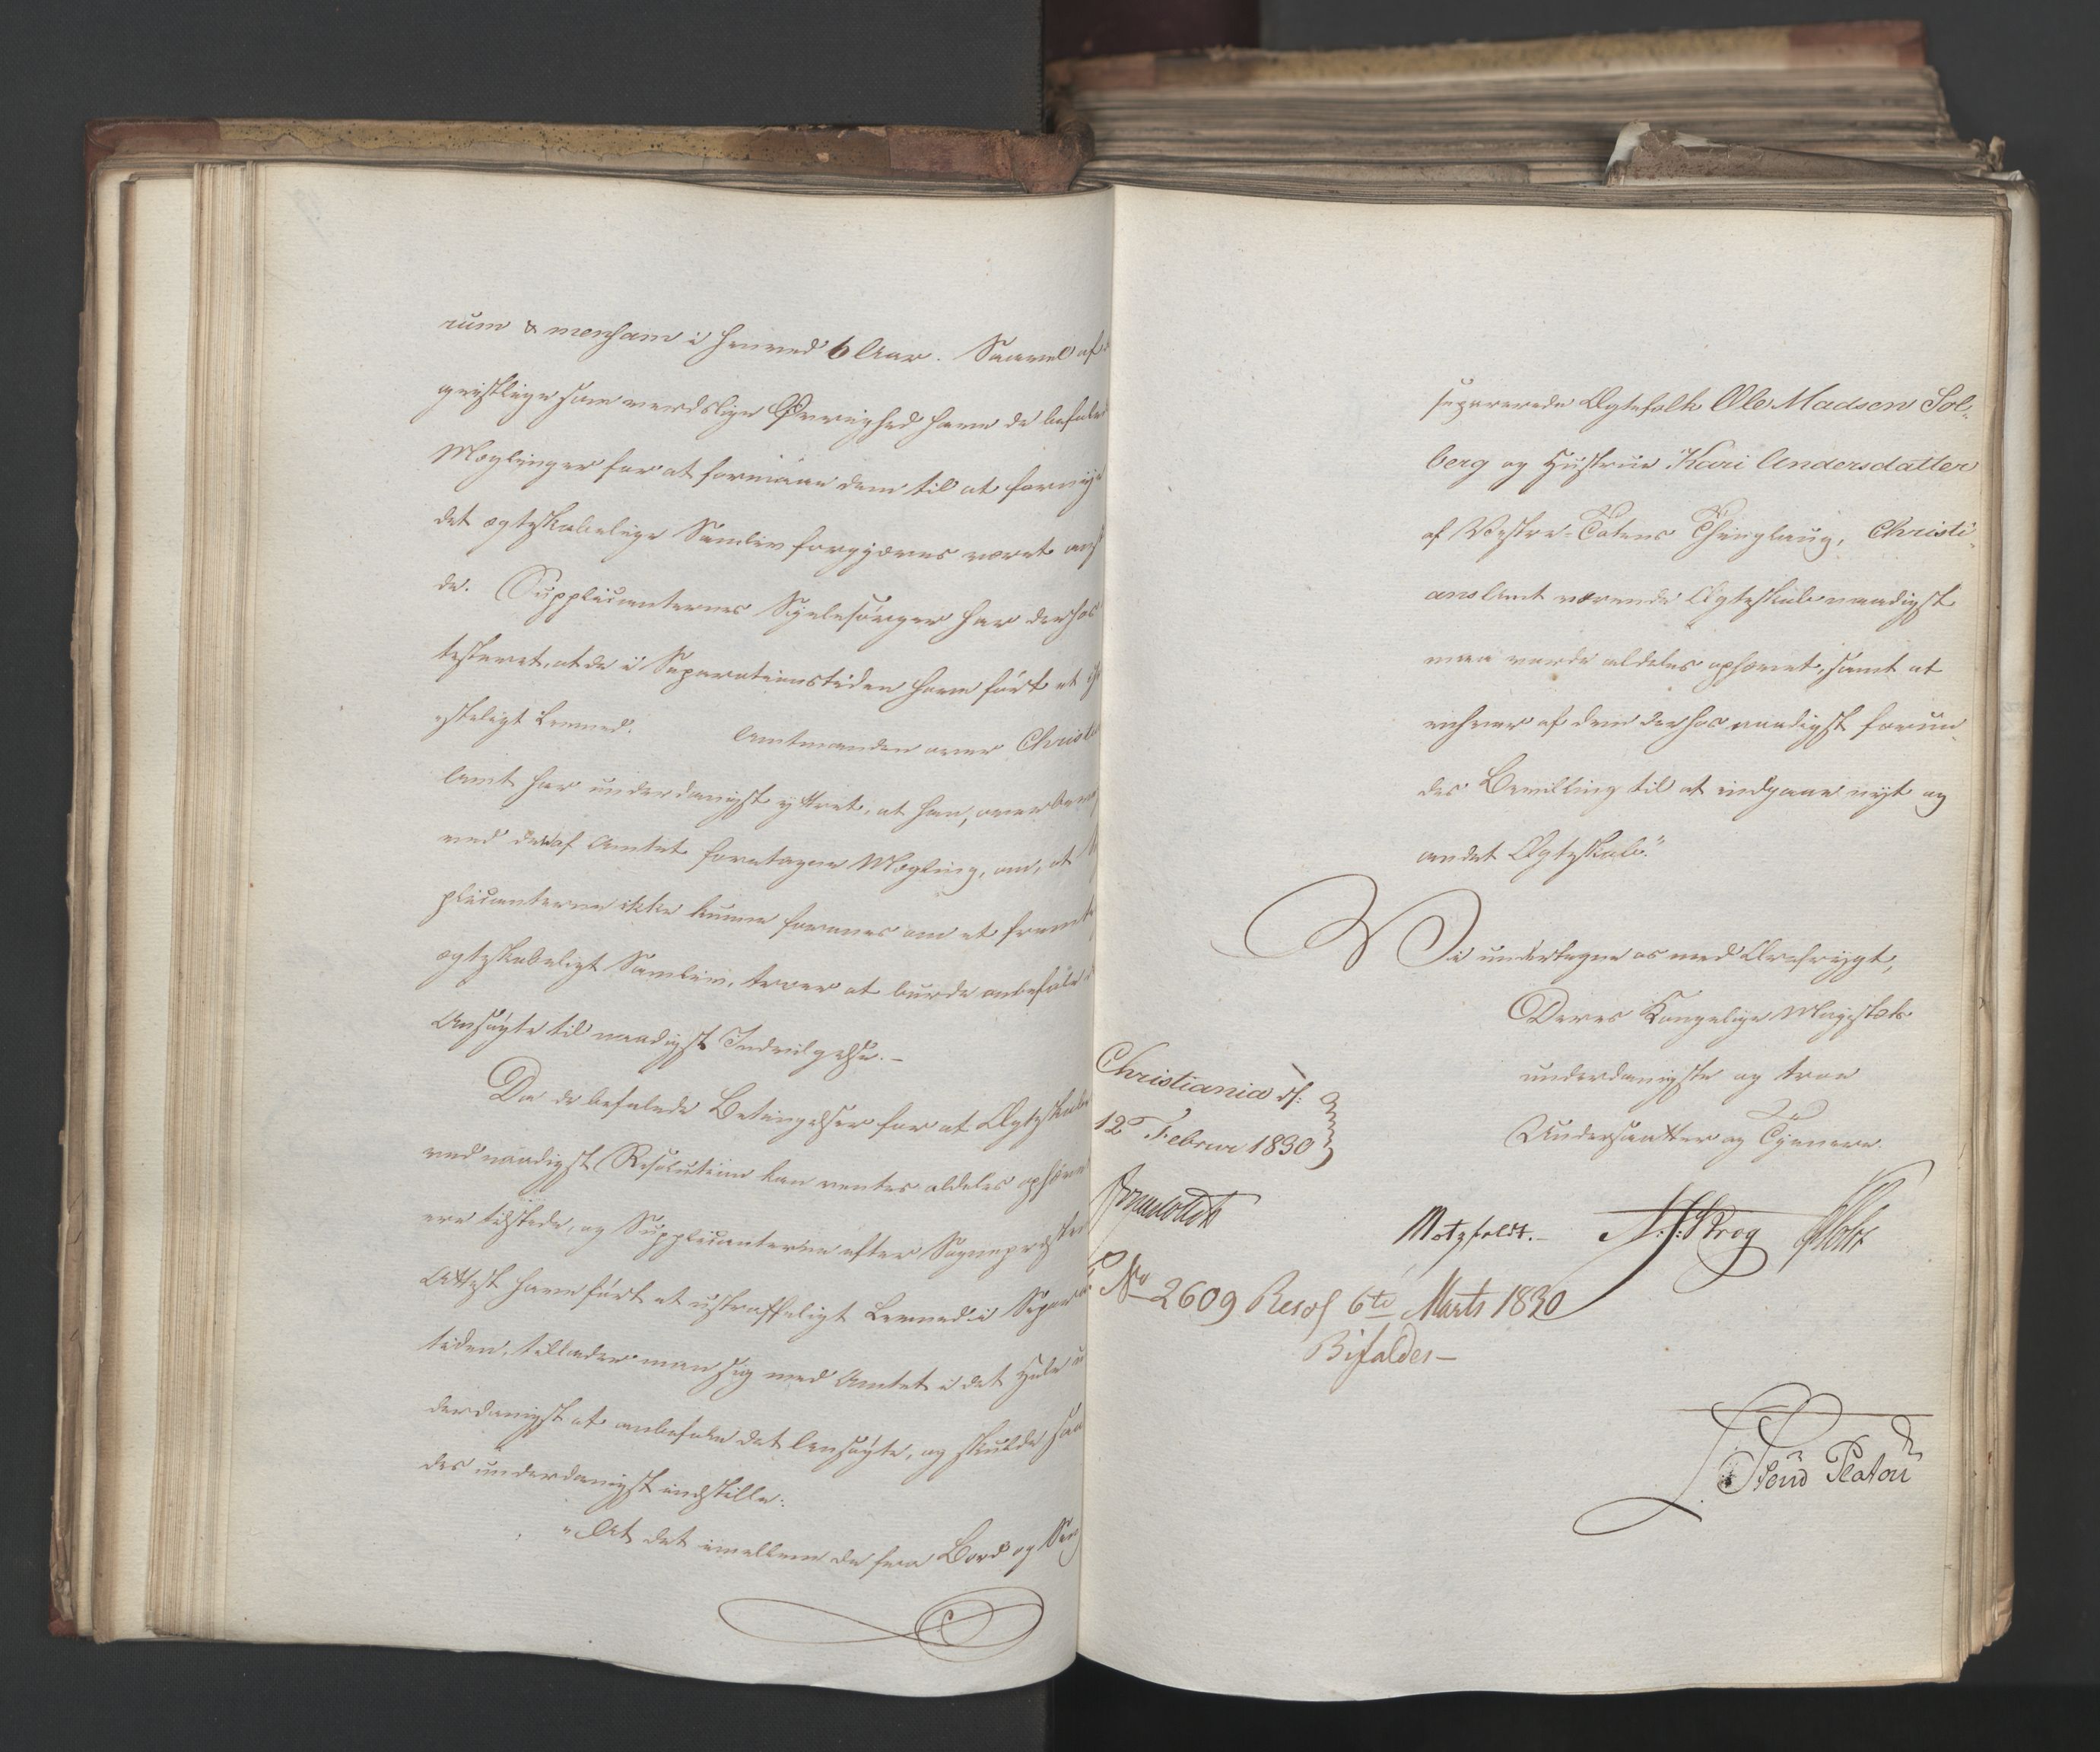 rum & mensam i henved 6 Aar. Saavel af
geistlige som verdslige Øvrighed have de befalede
Mæglinger for at formaae dem til at fornye
det ægteskabelige Samliv forgjæves været
de. Supplicanternes Sjælesørger har derhos
testeret, at de i Separationstiden have ført et
steligt Levned. Amtmanden over Christi
Amt har underdanigst yttret, at han, overbeviist
ved den af Amtet foretagne Mægling, om, at
plicanterne ikke kunne forenes om et fremt
ægteskabeligt Samliv, troer at burde anbefale
Ansøgte til naadigst Indvilgelse. –
Da de befalede Betingelser for at Ægteskaber
ved naadigst Resolution kan ventes aldeles ophævet
ere tilstede, og Supplicanterne efter Sognepræstens
Attest have ført et ustraffeligt Levned i Separa
tiden, tillader man sig med Amtet i det Hele un
derdanigst at anbefale det Ansøgte, og skulde saa
des underdanigst indstille:
"At det imellem de fra Bord og Seng
separerede Ægtefolk Ole Madsen Sol-
berg og Hustrue Kari Andersdatter
af Vestre-Totens Thinglaug, Christi-
ans Amt værende Ægteskab naadigst
maa vorde aldeles ophævet, samt at
enhver af dem derhos naadigst forun-
des Bevilling til at indgaae nyt og
andet Ægteskab."
Vi undertegne os med Ærefrygt,
Deres Kongelige Majestæts
underdanigste og troe
Undersaatter og Tjenere.
Christiania d:
12 Februar 1830
Motzfeldt. – Krog
No 2609 Resol 6te Marts 1830
Bifaldes –
Platou